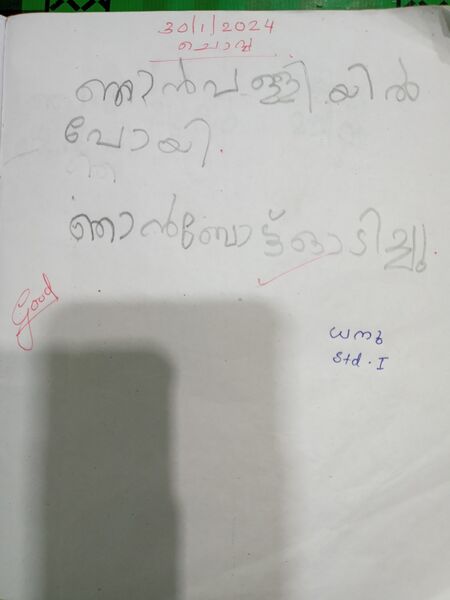 30/1/2024
ചൊവ്വ
ഞാൻ പള്ളിയിൽ
പോയി.
ഞാൻ ബോട്ട് ഓടിച്ചു.
Good
ധനു
Std. I